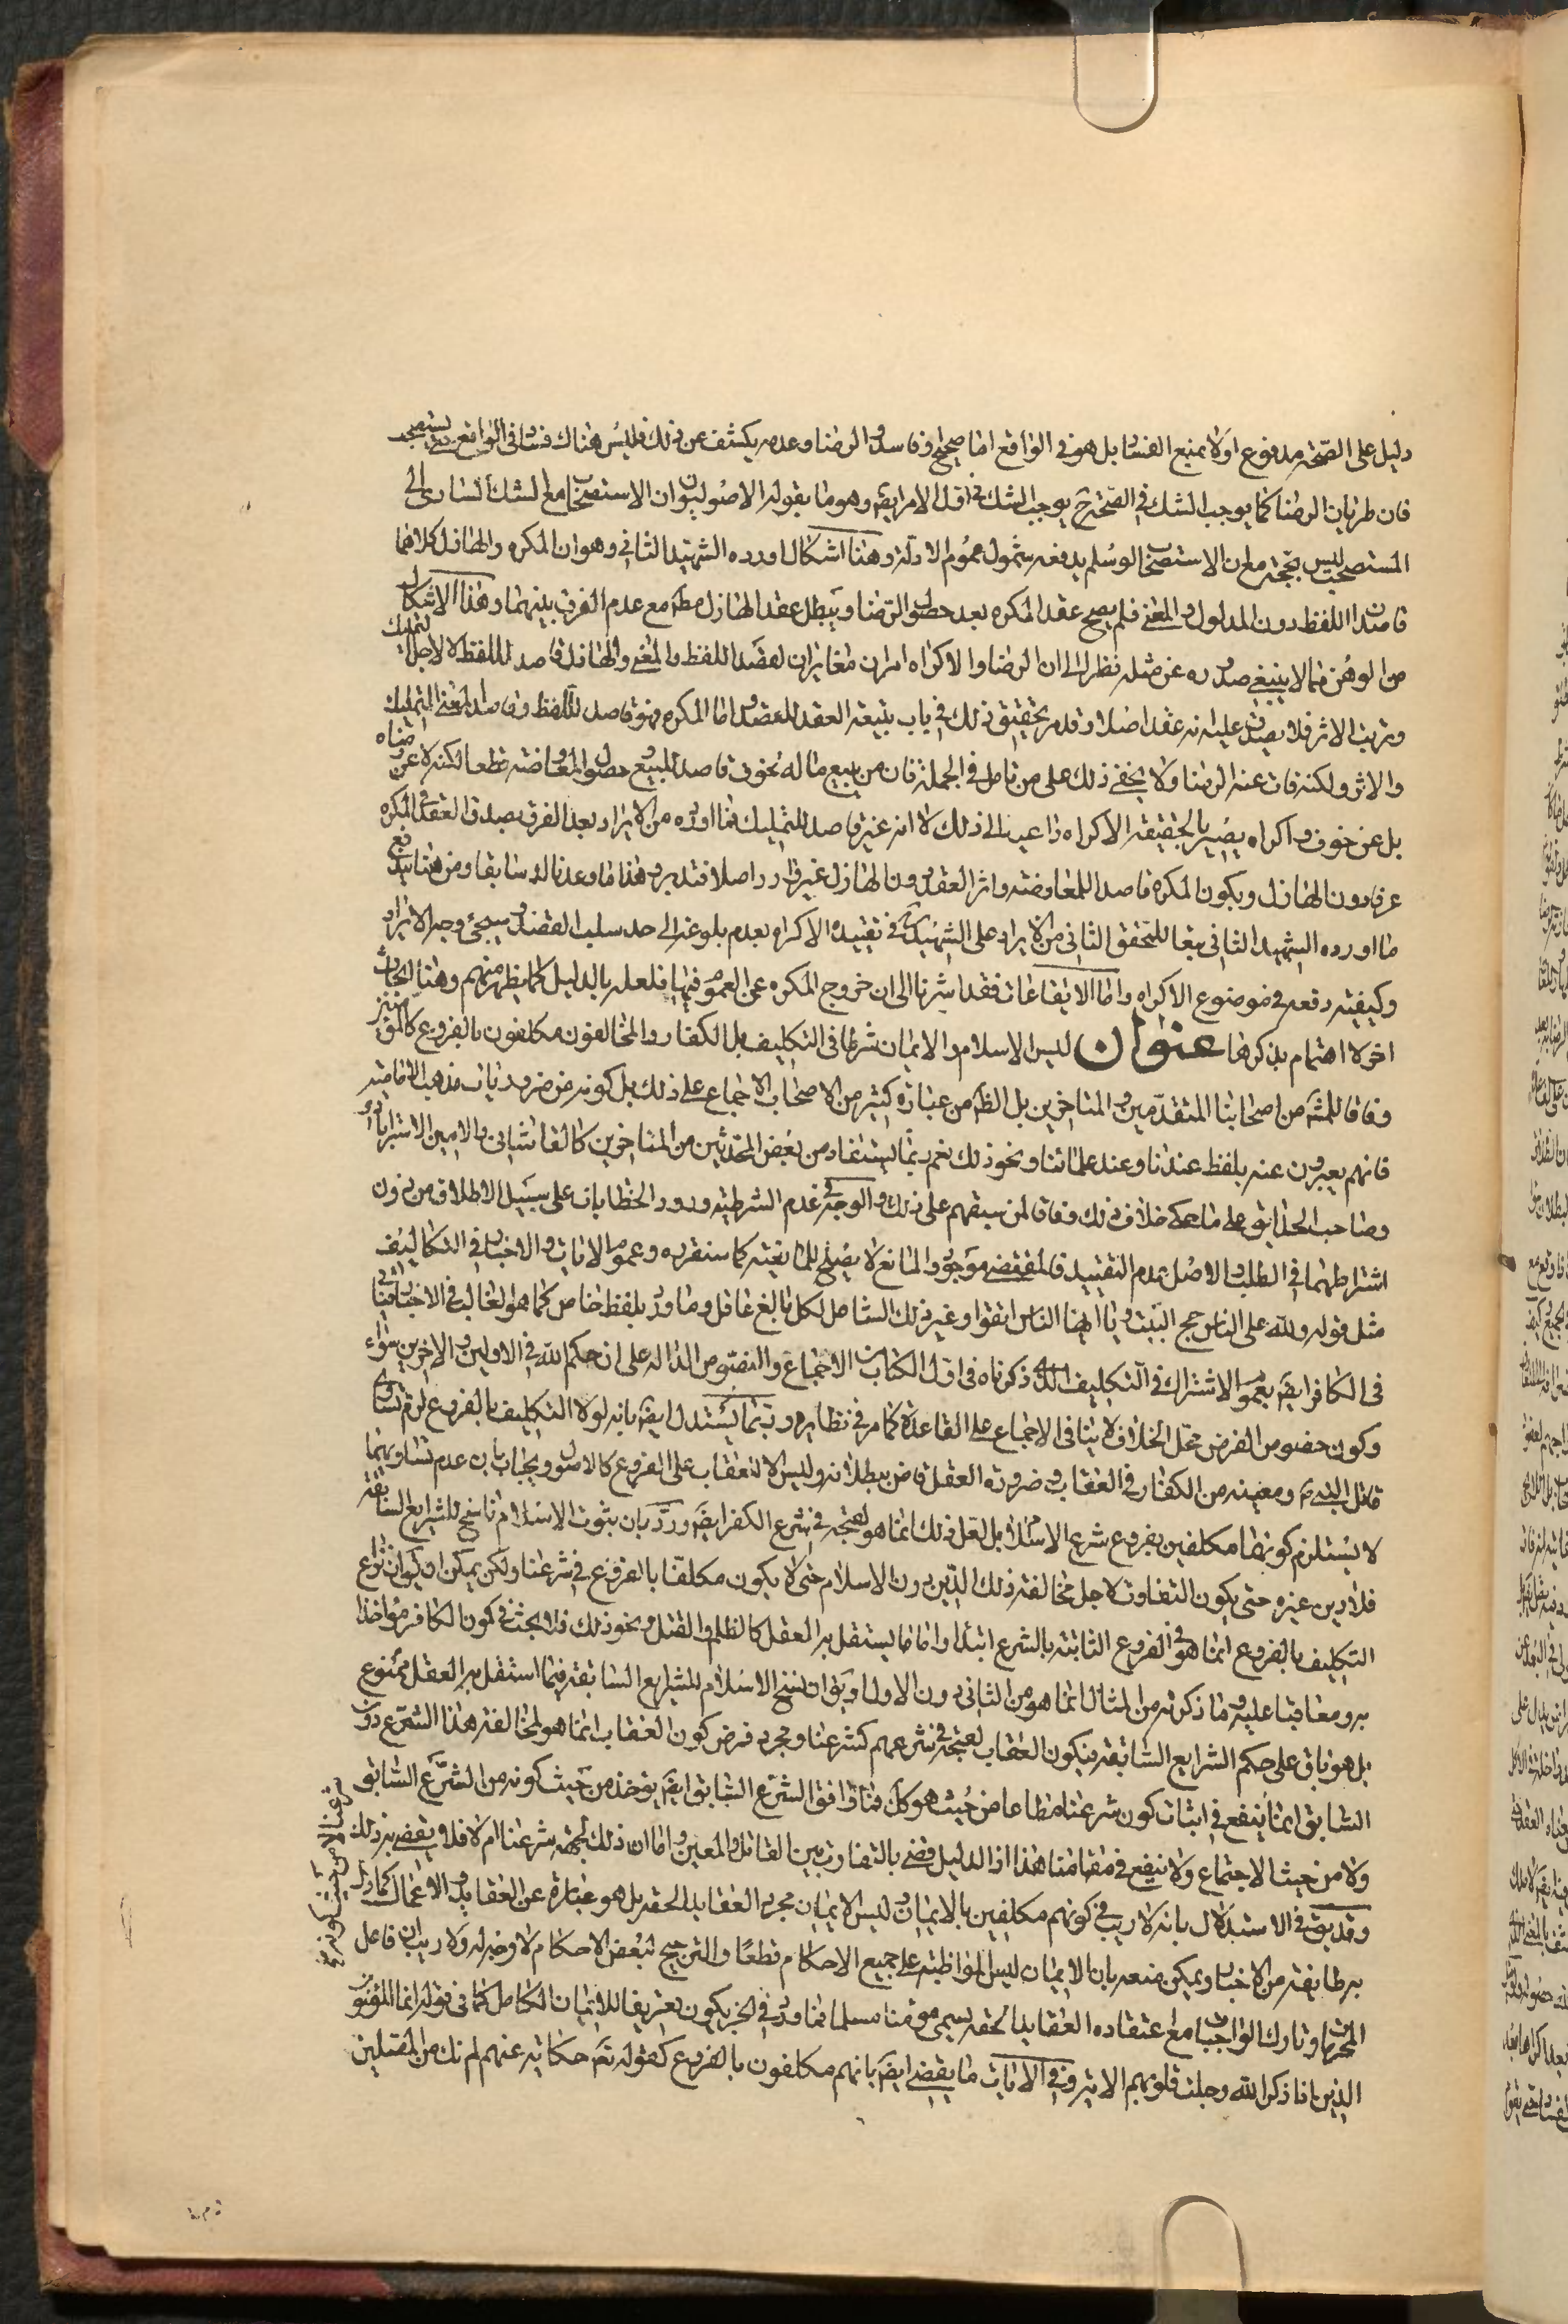 دليل على الصحة مدفوع اولا بمنع الفساد بل هو في الواقع اما صحيح او فاسد والرضا وعدمه يكشف عن ذلك فليس هناك فساد في الواقع حتى يستصحب
فان طريان الرضا كما يوجب الشك في الصحة ح يوجب الشك في اول الامر ايضا وهو ما يقوله الاصوليون ان الاستصحاب مع الشك الساري الى
المستصحب ليس بحجة مع ان الاستصحاب لو سلم يدفعه شمول عموم الادلة وهنا اشكال اورده الشهيد الثاني وهو ان المكره والهازل كلاهما
قاصدان اللفظ دون المدلول والمعنى فلم يصح عقد المكره بعد حصول الرضا ويبطل عقد الهازل مطلقا مع عدم الفرق بينهما وهذا الاشكال
من الوهن مما لا ينبغي صدوره عن مثله نظرا الى ان الرضا والاكراه امران مغايران لقصد اللفظ والمعنى والهازل قاصد للفظ لا لاجل التمليك
وترتب الاثر فلا يصدق عليه انه عقد اصلا وقد مر تحقيق ذلك في باب تبعية العقد للقصود اما المكره فهو قاصد للفظ وقاصد لمعنى التمليك
والاثر ولكنه فات عنه الرضا ولا يخفى ذلك على من تامل في الجملة فان من يبيع ماله بخوف قاصد للبيع وحصول المعاوضة قطعا لكنه لا عن رضاه
بل عن خوف واكراه يصير بالحقيقة الاكراه داعيا الى ذلك لا انه غير قاصد للتمليك فما اورده من الايراد بعد الفرق بصدق العقد في المكره
عرفا دون الهازل ويكون المكره قاصدا للمعاوضة واثر العقد دون الهازل غير وارد اصلا فتدبر وهذا ما وعدناك سابقا ومن هنا يندفع
ما اورده الشهيد الثاني تبعا للمحقق الثاني من الايراد على الشهيد في تقييده الاكراه بعدم بلوغه الى حد سلب القصد وسيجئ وجه الايراد
وكيفية دفعه في موضوع الاكراه واما الايقاعات فقد اشرنا الى ان خروج المكره عن العموم فيها فلعله بالدليل كما يظهر منهم وهنا ابحاث
اخر لا اهتمام بذكرها عنوان ليس الاسلام والايمان شرطا في التكليف بل الكفار والمخالفون مكلفون بالفروع كالمؤمنين
وفاقا للمش من اصحابنا المتقدمين والمتاخرين بل الظ من عبارة كثير من الاصحاب الاجماع على ذلك بل كونه من ضروريات مذهب الامامية
فانهم يعبرون عنه بلفظ عندنا وعند علمائنا ونحو ذلك نعم ربما يستفاد من بعض المحدثين من المتاخرين كالقاشاني والامين الاسترابادي
وصاحب الحدائق على ما حكي خلاف ذلك وفاقا لمن سبقهم على ذلك والوجه في عدم الشرطية ورود الخطابات على سبيل الاطلاق من دون
اشتراطهما في الطلب والاصل عدم التقييد فالمقتضي موجود والمانع لا يصلح للمانعية كما سنقرره وعموم الايات والاخبار في التكاليف
مثل قوله ولله على الناس حج البيت ويا ايها الناس اتقوا وغير ذلك الشامل لكل بالغ عاقل وما ورد بلفظ خاص كما هو الغالب في الاخبار فياتي
في الكافر ايضا بعموم الاشتراك في التكليف الذي ذكرناه في اول الكتاب من الاجماع والنصوص الدالة على ان حكم الله في الاولين والاخرين سواء
وكون خصوص الفرض محل الخلاف لا ينافي الاجماع على القاعدة كما مر في نظايره وربما يستدل ايضا بانه لولا التكليف بالفروع لزم تساوي
قاتل النبي ومعينه من الكفار في العقاب وضرورة العقل قاض ببطلانه وليس الا لعقاب على الفروع كالاصول ويجاب بان عدم تساويهما
لا يستلزم كونهما مكلفين بفروع شرع الاسلام بل لعل ذلك انما هو لقبحه في شرع الكفر ايضا ورد بان بثبوت الاسلام ناسخ للشرايع السابقة
فلا دين غيره حتى يكون التفاوت لاجل مخالفة ذلك الدين دون الاسلام حتى لا يكون مكلفا بالفروع في شرعنا ولكن يمكن ان يكون نزاع
التكليف بالفروع انما هو في الفروع الثابتة بالشرع ابتداء واما ما يستقل به العقل كالظلم والقتل ونحو ذلك فلا بحث في كون الكافر مؤاخذا
به ومعاقبا عليه وما ذكرته من المثال انما هو من الثاني دون الاول او يق ان نسخ الاسلام للشرايع السابقة فيما استقل به العقل ممنوع
بل هو باق على حكم الشرايع السابقة فيكون العقاب لقبحه في شرعهم كشرعنا ومجرد فرض كون العقاب انما هو لمخالفة هذا الشرع دون
السابق انما ينفع في اثبات كون شرعنا مطاعا من حيث هو كل فما وافق الشرع السابق ايضا يؤخذ من حيث كونه من الشرع السابق
ولا من حيث الاجتماع ولا ينفع في مقامنا هذا اذ الدليل قضى بالتفاوت بين القاتل والمعين واما ان ذلك لجهة شرعنا ام لا فلا ويقضى به ذلك
وقد يق في الاستدلال بانه لا ريب في كونهم مكلفين بالايمان وليس الايمان مجرد العقايد الحقه بل هو عبارة عن العقايد والاعمال كما دل
به طايفة من الاخبار ويمكن منعه بان الايمان ليس المواظبة على جميع الاحكام قطعا والترجيح لبعض الاحكام لا وجه له ولا ريب ان فاعل
المحرمات وتارك الواجبات مع اعتقاده العقايد الحقه يسمى مؤمنا مسلما فما ورد في الخبر يكون تعريفا للايمان الكامل كما في قوله انما المؤمنون
الذين اذا ذكر الله وجلت قلوبهم الاية وفي الايات ما يقضي ايضا بانهم مكلفون بالفروع كقوله تع حكاية عنهم لم نك من المصلين